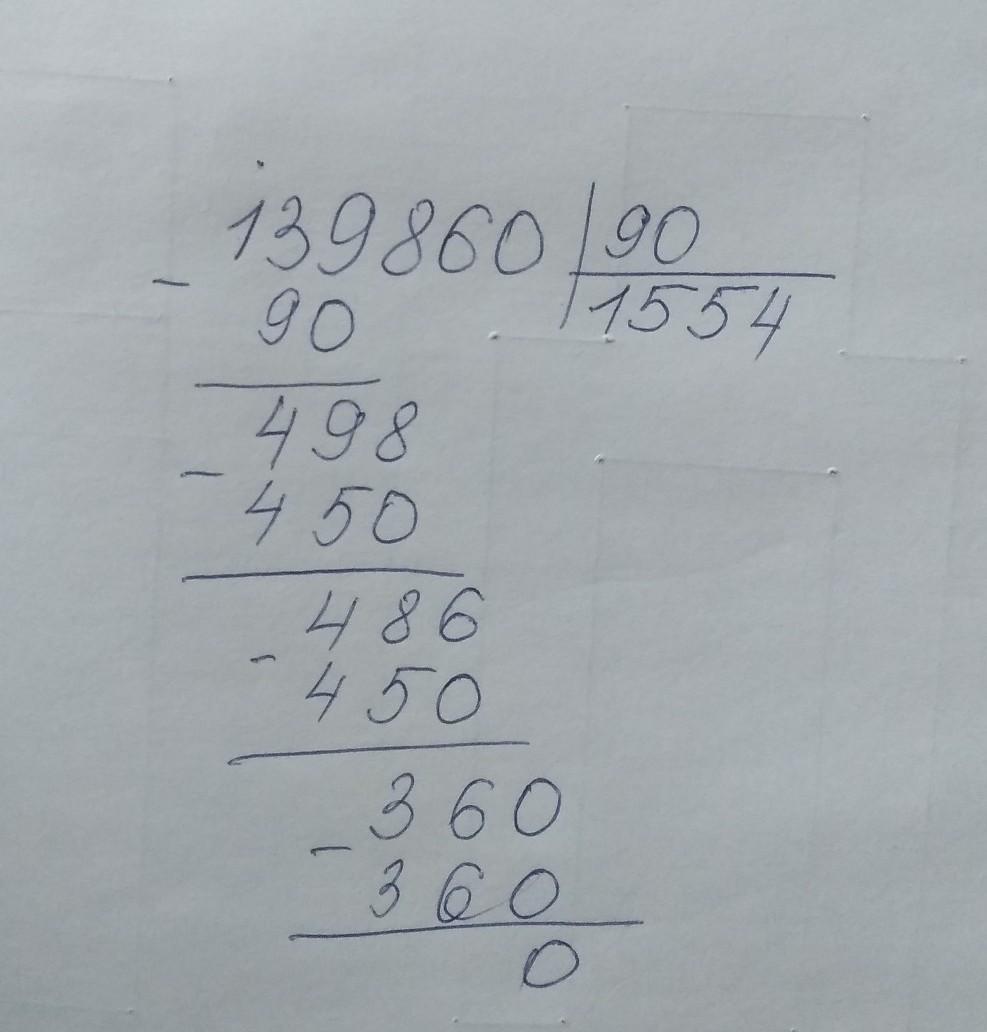 139860 | 90
- 90 | 1554
498
- 450
486
- 450
360
- 360
0